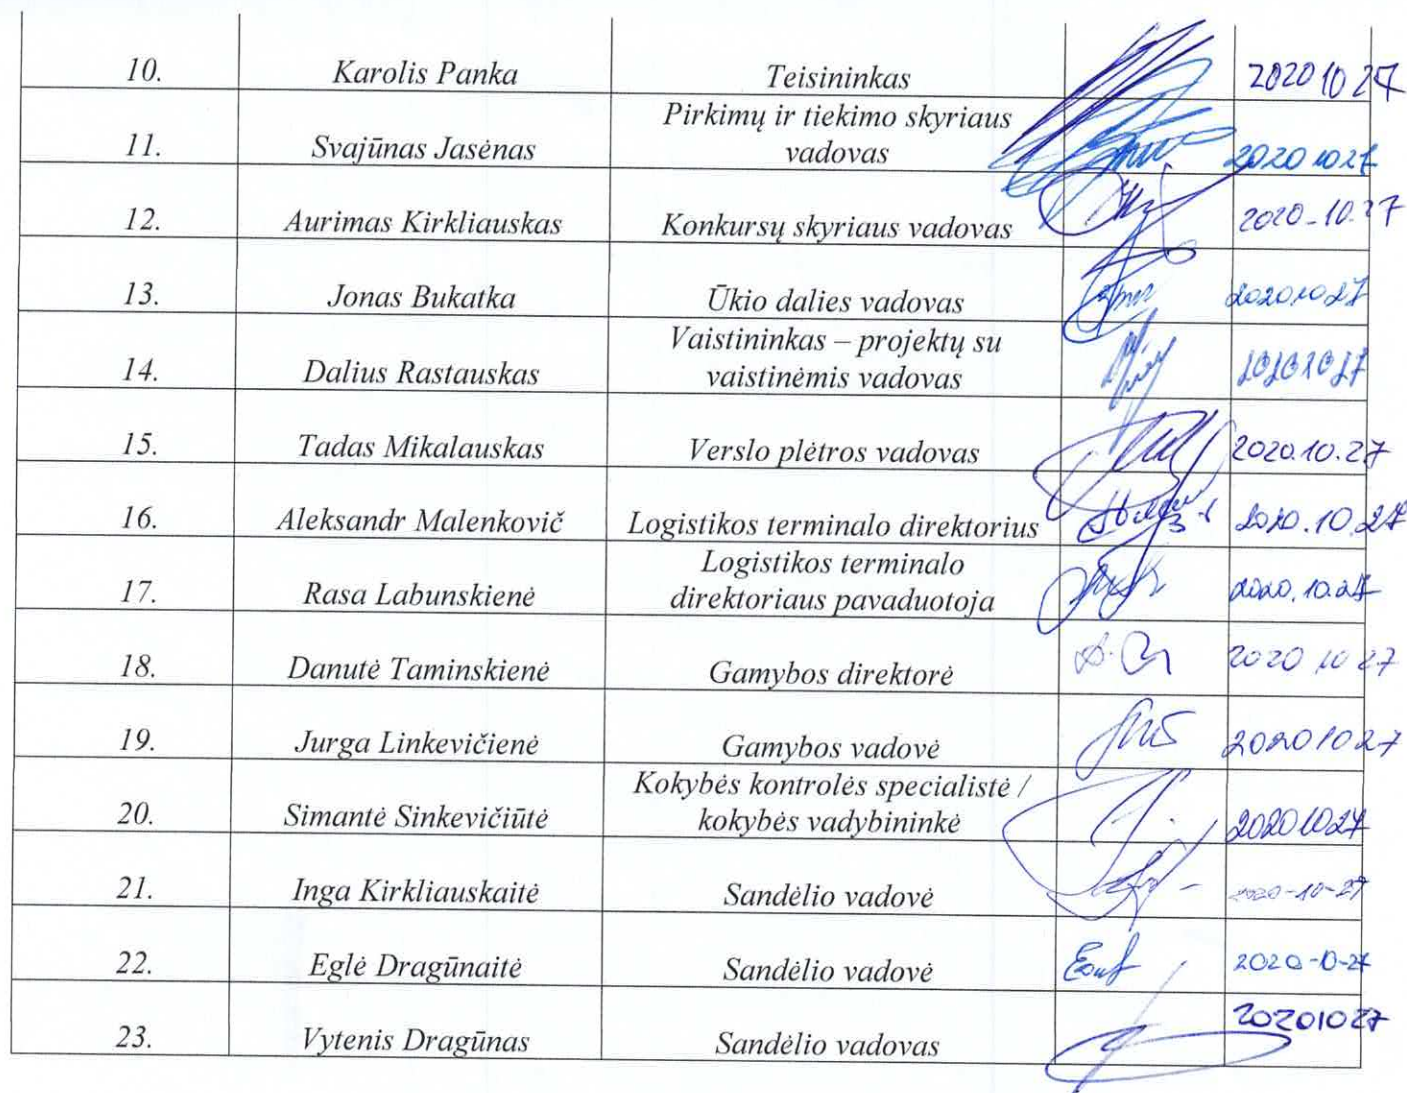 10. Karolis Panka Teisininkas 2020 10 27
11. Svajūnas Jasėnas Pirkimų ir tiekimo skyriaus vadovas 2020 10 27
12. Aurimas Kirkliauskas Konkursų skyriaus vadovas 2020-10.27
13. Jonas Bukatka Ūkio dalies vadovas 2020 10 27
14. Dalius Rastauskas Vaistininkas – projektų su vaistinėmis vadovas 20201027
15. Tadas Mikalauskas Verslo plėtros vadovas 2020.10.27
16. Aleksandr Malenkovič Logistikos terminalo direktorius 2020.10.27
17. Rasa Labunskienė Logistikos terminalo direktoriaus pavaduotoja 2020.10.27
18. Danutė Taminskienė Gamybos direktorė 2020 10 27
19. Jurga Linkevičienė Gamybos vadovė 2020 10 27
20. Simantė Sinkevičiūtė Kokybės kontrolės specialistė / kokybės vadybininkė 2020 10 27
21. Inga Kirkliauskaitė Sandėlio vadovė 2020-10-27
22. Eglė Dragūnaitė Sandėlio vadovė 2020-10-27
23. Vytenis Dragūnas Sandėlio vadovas 20201027